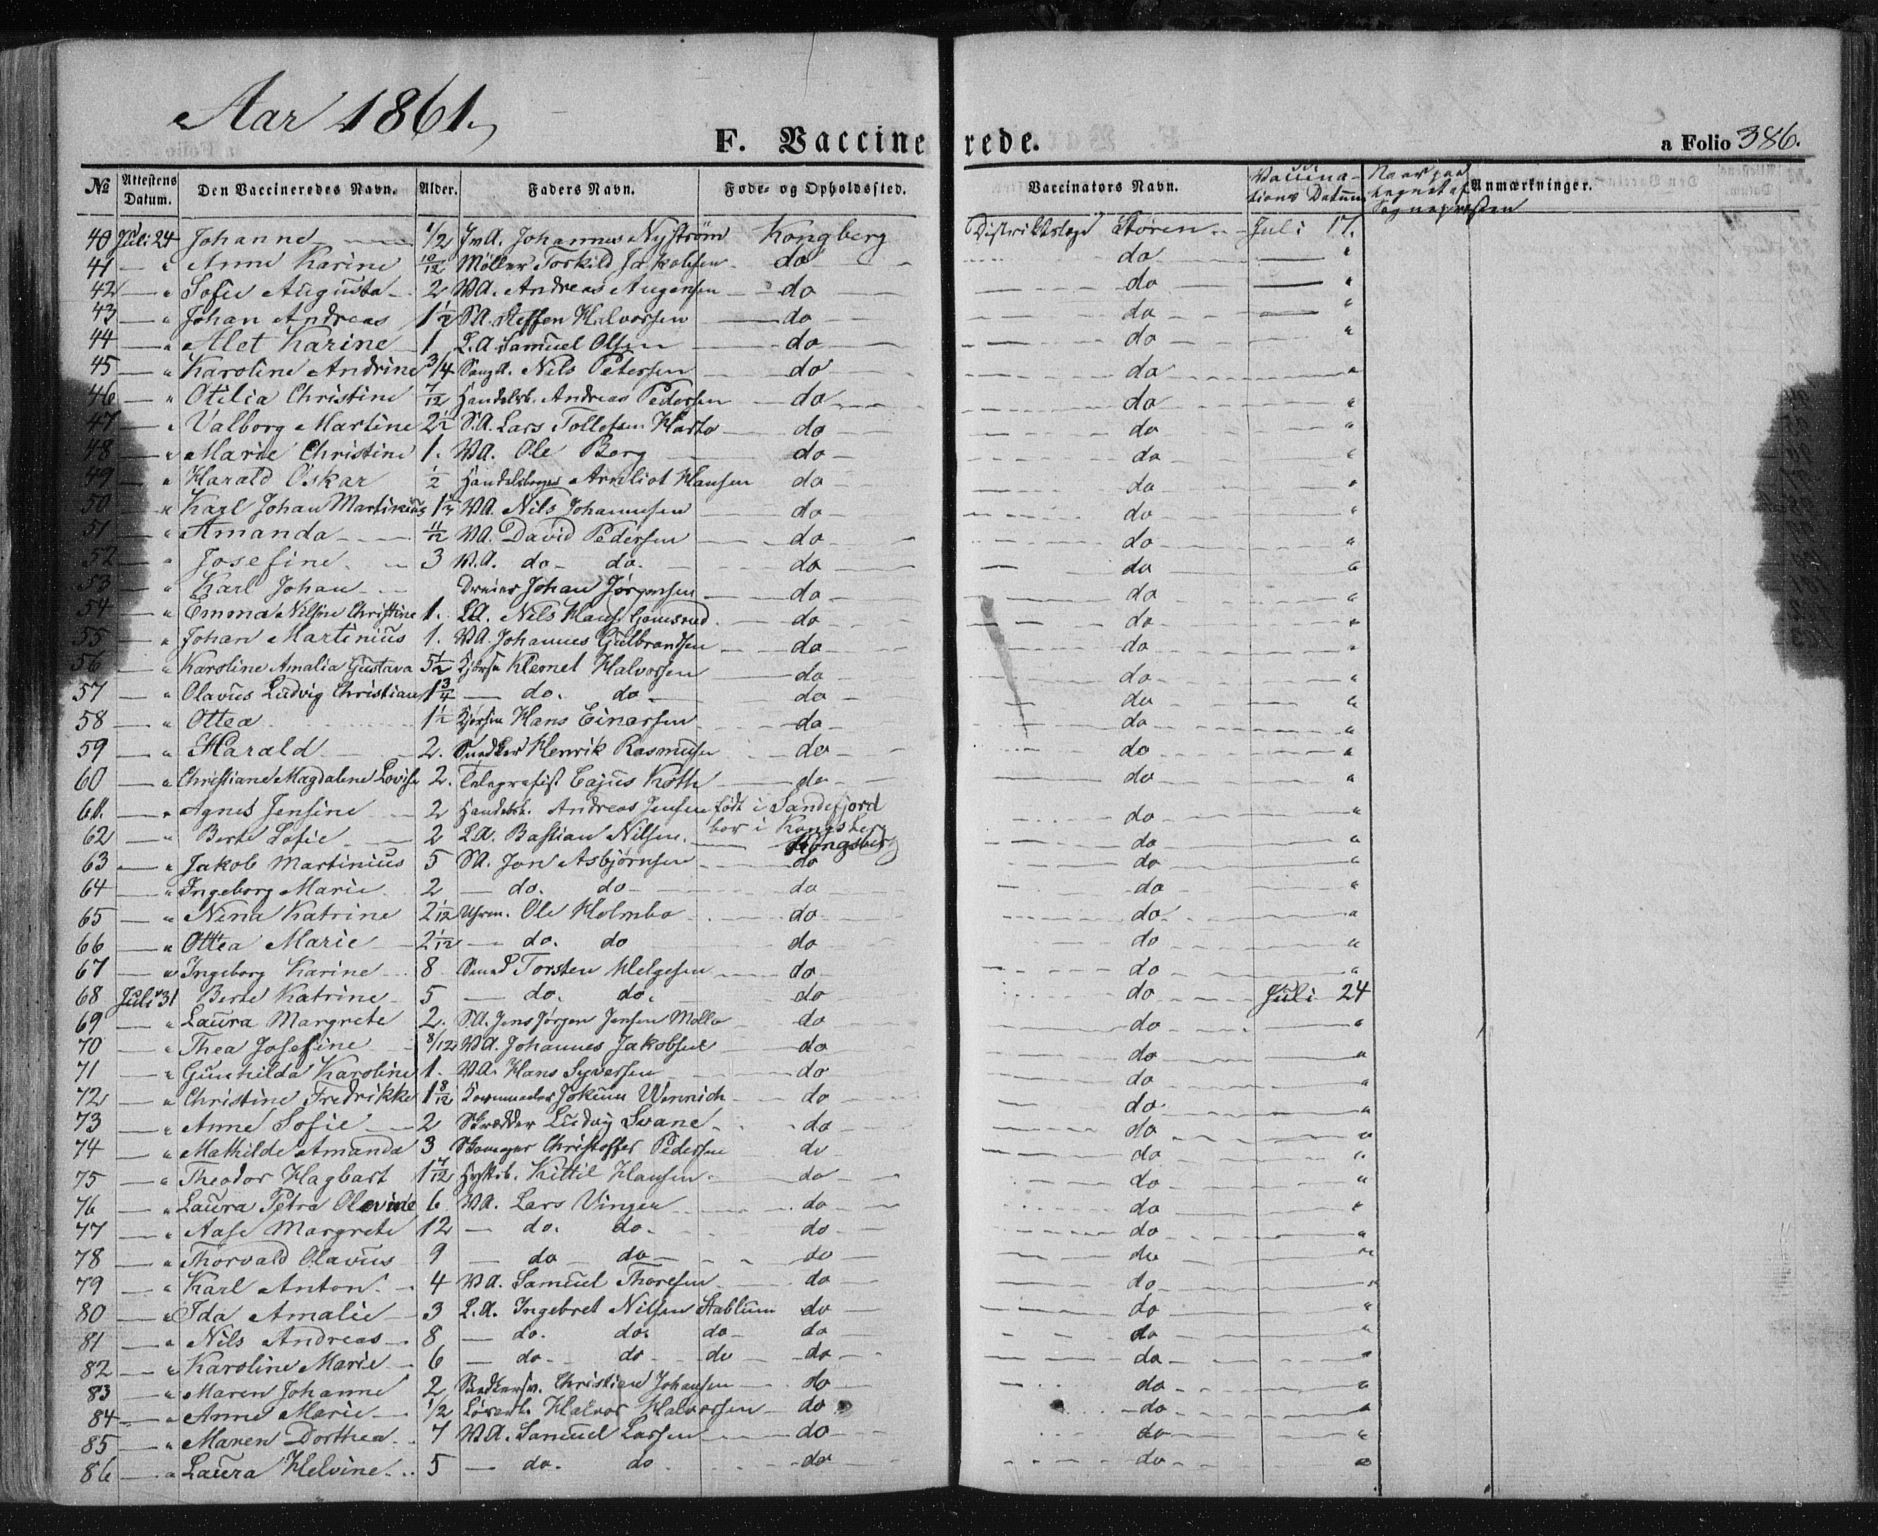 Aar 1861.
F. Vaccinerede.
a Folio 386.
№ Attestens Datum. Den Vaccineredes Navn. Alder. Faders Navn. Føde- og Opholdssted. Vaccinators Navn. Vaccinations Datum Anmærkninger.
40 Juli 24 Johanne 1/2 Johannes Nyström Kongberg Distriktslæge Støren Juli 17.
41 — " Anne Karine 10/12 Møller Torkild Jakobsen do do — "
42 — " Sofie Augusta 2 VA. Andreas Augensen do do — "
43 — " Johan Andreas 1 1/2 SA. Steffen Halvorsen do do — "
44 — " Alet Karine 1. L.A. Samuel Olsen do do "
45 — " Karoline Andrine 3/4 Nils Petersen do do "
46 — " Otilia Christine 7/12 Handelsb. Andreas Pedersen do do "
47 — " Valborg Martine 2 1/2 S.A. Lars Tollefsen do do "
48 — " Marie Christine 1. VA. Ole Berg do do "
49 — " Harald Oskar 1/2 Hansen do do "
50 — " Karl Johan Martinius 1 1/2 VA. Nils Johannesen do do "
51 — " Amanda 11/12 VA. David Pedersen do do "
52 — " Josefine 3 V.A. do do. do do "
53 — " Karl Johan Dreier Johan Jørgensen do do "
54 — " Emma Nilsine Christine 1. LA. Nils Hans. do do "
55 — " Johan Martinius 1. VA. Johannes Gulbrandsen do do "
56 — " Karoline Amalia Gustava 5 1/2 Klemet Halvorsen do do "
57 — " Olavus Ludvig Christian 1 3/4 — do. do — do do "
58 — " Ottea 1 1/2 Hans Einersen do do "
59 — " Harald 2. Snedker Henrik Rasmusen do do "
60 — " Christiane Magdalene Lovise 2. Telegrafist Cajus Koth do do "
61. — " Agnes Jensine 2 Handelsb. Andreas Jensen født i Sandefjord bor i Kongsberg do "
62 — " Berte Sofie 2 L.A. Bastian Nilsen. Kongsberg do "
63 — " Jakob Martinius 5 SA. Jon Asbjørnsen do do "
64 — " Ingeborg Marie 2 — do. do — do do "
65 — " Nena Katrine 2 1/12 Uhrm. Ole Holmbo do do "
66 — " Ottea Marie 2 1/12 — do. do do do "
67 — " Ingeborg Karine 8 Smed Torsten Helgesen do do "
68 Juli 31 Berte Katrine 5 — do. do. do do Juli 24
69 — " Laura Margrete 2. SA. Jens Jørgen Jensen Mollo do do "
70 — " Thea Josefine 8/12 VA. Johannes Jakobsen do do "
71 — " Gunhilda Karoline 1. VA. Hans Syversen do do "
72 — " Christine Fredrikke 1 8/12 Jokum Wennich do do "
73 — " Anne Sofie 2 Skrædder Ludvig Svane do do "
74 — " Mathilde Amanda 3 Skomager Christoffer Pedersen do do "
75 — " Theodor Hagbart 1 7/12 Kittil Hansen do do "
76 — " Laura Petra Olevine 6 VA. Lars Vingen do do "
77 — " Aase Margrete 12 — do. do. do do "
78 — " Thorvald Olavus 9 — do do — do do "
79 — " Karl Anton 4 VA. Samuel Thoresen do do "
80 — " Ida Amalie 3 L.A. Ingebret Nilsen Stablum do do "
81 — " Nils Andreas 8 — do. do. do — do do "
82 — " Karoline Marie 6 — do. do do do do "
83 — " Maren Johanne 2 Christian Johansen do do "
84 — " Anne Marie 1/2 Halvor Halvorsen do do "
85 — " Maren Dorthea 7 VA. Samuel Larsen do do "
86 — " Laura Helvine 5 — do. do do do "